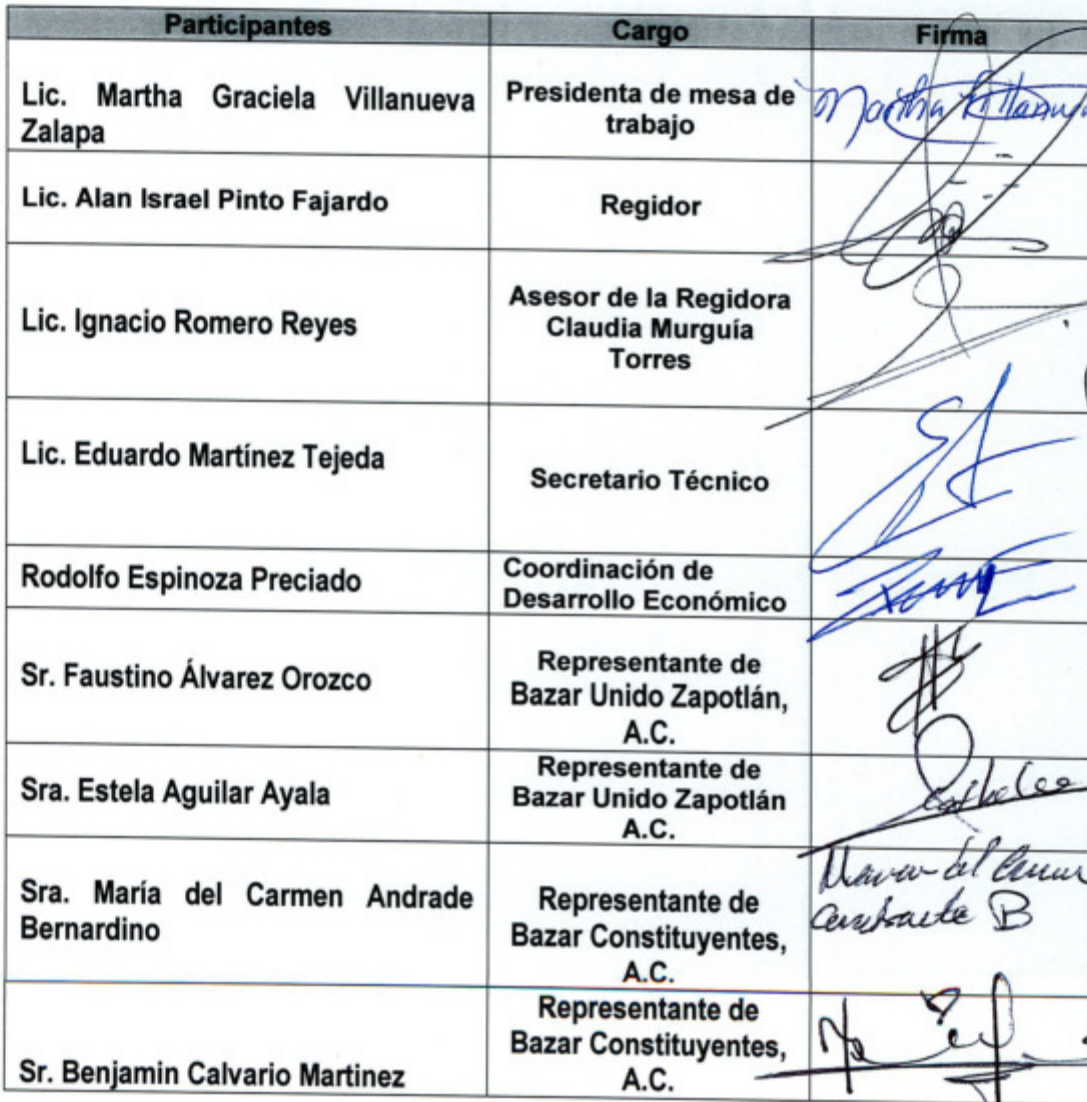 Participantes Cargo Firma
Lic. Martha Graciela Villanueva
Zalapa
Presidenta de mesa de
trabajo
Martha
Lic. Alan Israel Pinto Fajardo
Regidor
Lic. Ignacio Romero Reyes
Asesor de la Regidora
Claudia Murguía
Torres
Lic. Eduardo Martínez Tejeda
Secretario Técnico
Rodolfo Espinoza Preciado
Coordinación de
Desarrollo Económico
Sr. Faustino Álvarez Orozco
Representante de
Bazar Unido Zapotlán,
A.C.
Sra. Estela Aguilar Ayala
Representante de
Bazar Unido Zapotlán
A.C.
Sra. María del Carmen Andrade
Bernardino
Representante de
Bazar Constituyentes,
A.C.
del
B
Sr. Benjamin Calvario Martinez
Representante de
Bazar Constituyentes,
A.C.